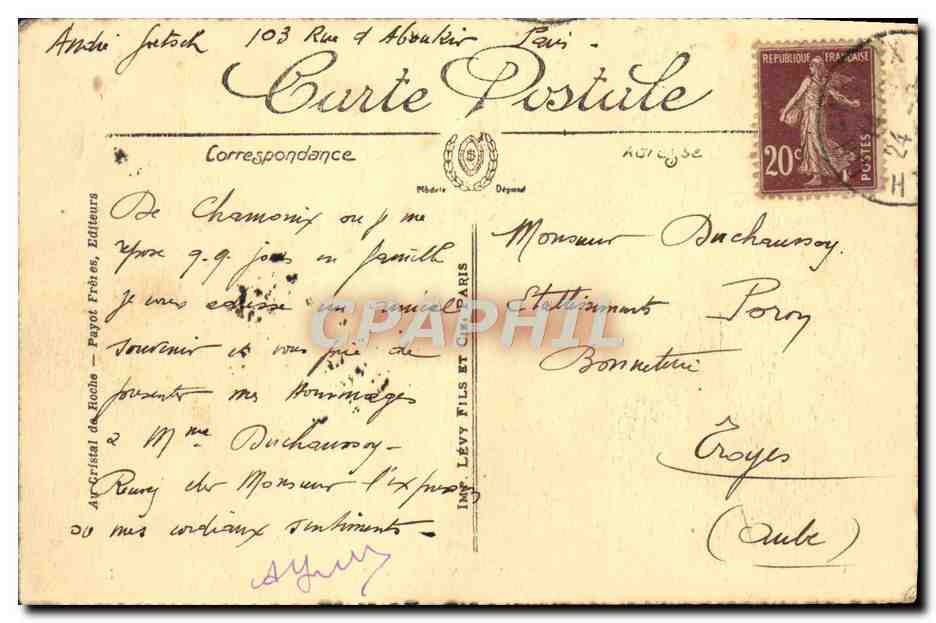 André Gretsch 103 Rue d'Aboukir Paris -
Carte Postale
Correspondance
Adresse
Modèle Déposé
RÉPUBLIQUE FRANÇAISE
20c
POSTES
24
De Chamonix ou je me
repose q.q. jours en famille
je vous adresse un amical
souvenir et vous prie de
presenter mes Hommages
à Mme Duchaussoy -
Recevez cher Monsieur l'expression
de mes cordiaux sentiments -
Monsieur Duchaussoy.
Etablissements Poron
Bonneterie
Troyes
(Aube)
Au Cristal de Roche — Payot Frères, Editeurs
IMP. LÉVY FILS ET CIE, PARIS
CPAPHIL